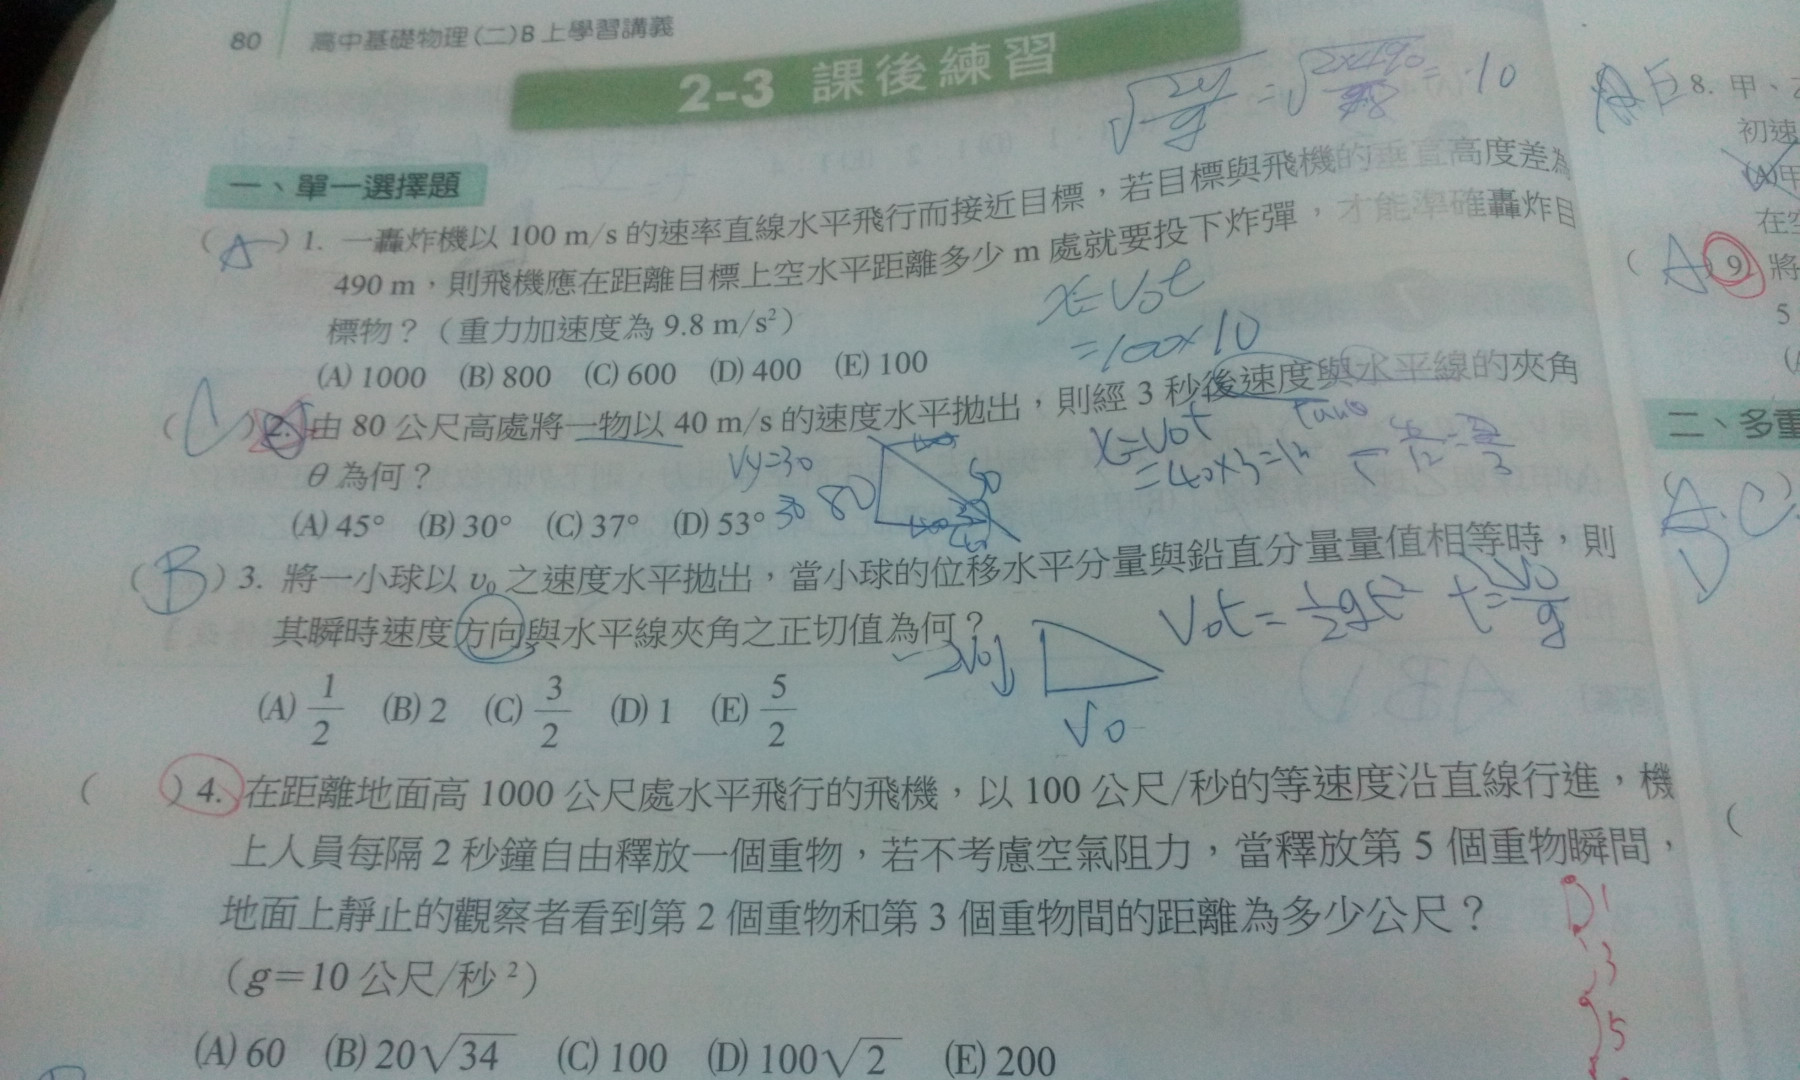 80 高中基礎物理(二)B上學習講義
2-3 課後練習
√(2y/g) = √(2×490/9.8) = 10
一、單一選擇題
( A ) 1. 一轟炸機以 100 m/s 的速率直線水平飛行而接近目標，若目標與飛機的垂直高度差為
490 m，則飛機應在距離目標上空水平距離多少 m 處就要投下炸彈，才能準確轟炸目
標物？（重力加速度為 9.8 m/s²）
x=V0t
=100×10
(A) 1000 (B) 800 (C) 600 (D) 400 (E) 100
( C ) 2. 由 80 公尺高處將一物以 40 m/s 的速度水平拋出，則經 3 秒後速度與水平線的夾角
θ 為何？
Vy=30
x=V0t
=40×3=12
tanθ
(A) 45° (B) 30° (C) 37° (D) 53°
30 80
50
( B ) 3. 將一小球以 v0 之速度水平拋出，當小球的位移水平分量與鉛直分量量值相等時，則
其瞬時速度方向與水平線夾角之正切值為何？
V0t = 1/2 gt² t = 2V0/g
2V0
V0
(A) 1/2 (B) 2 (C) 3/2 (D) 1 (E) 5/2
( ) 4. 在距離地面高 1000 公尺處水平飛行的飛機，以 100 公尺/秒的等速度沿直線行進，機
上人員每隔 2 秒鐘自由釋放一個重物，若不考慮空氣阻力，當釋放第 5 個重物瞬間，
地面上靜止的觀察者看到第 2 個重物和第 3 個重物間的距離為多少公尺？
（g＝10 公尺/秒²）
(A) 60 (B) 20√34 (C) 100 (D) 100√2 (E) 200
1
3
5
E 8. 甲、
初速
(A)甲
在空
( A ) 9. 將
5
二、多重
A.C.
D